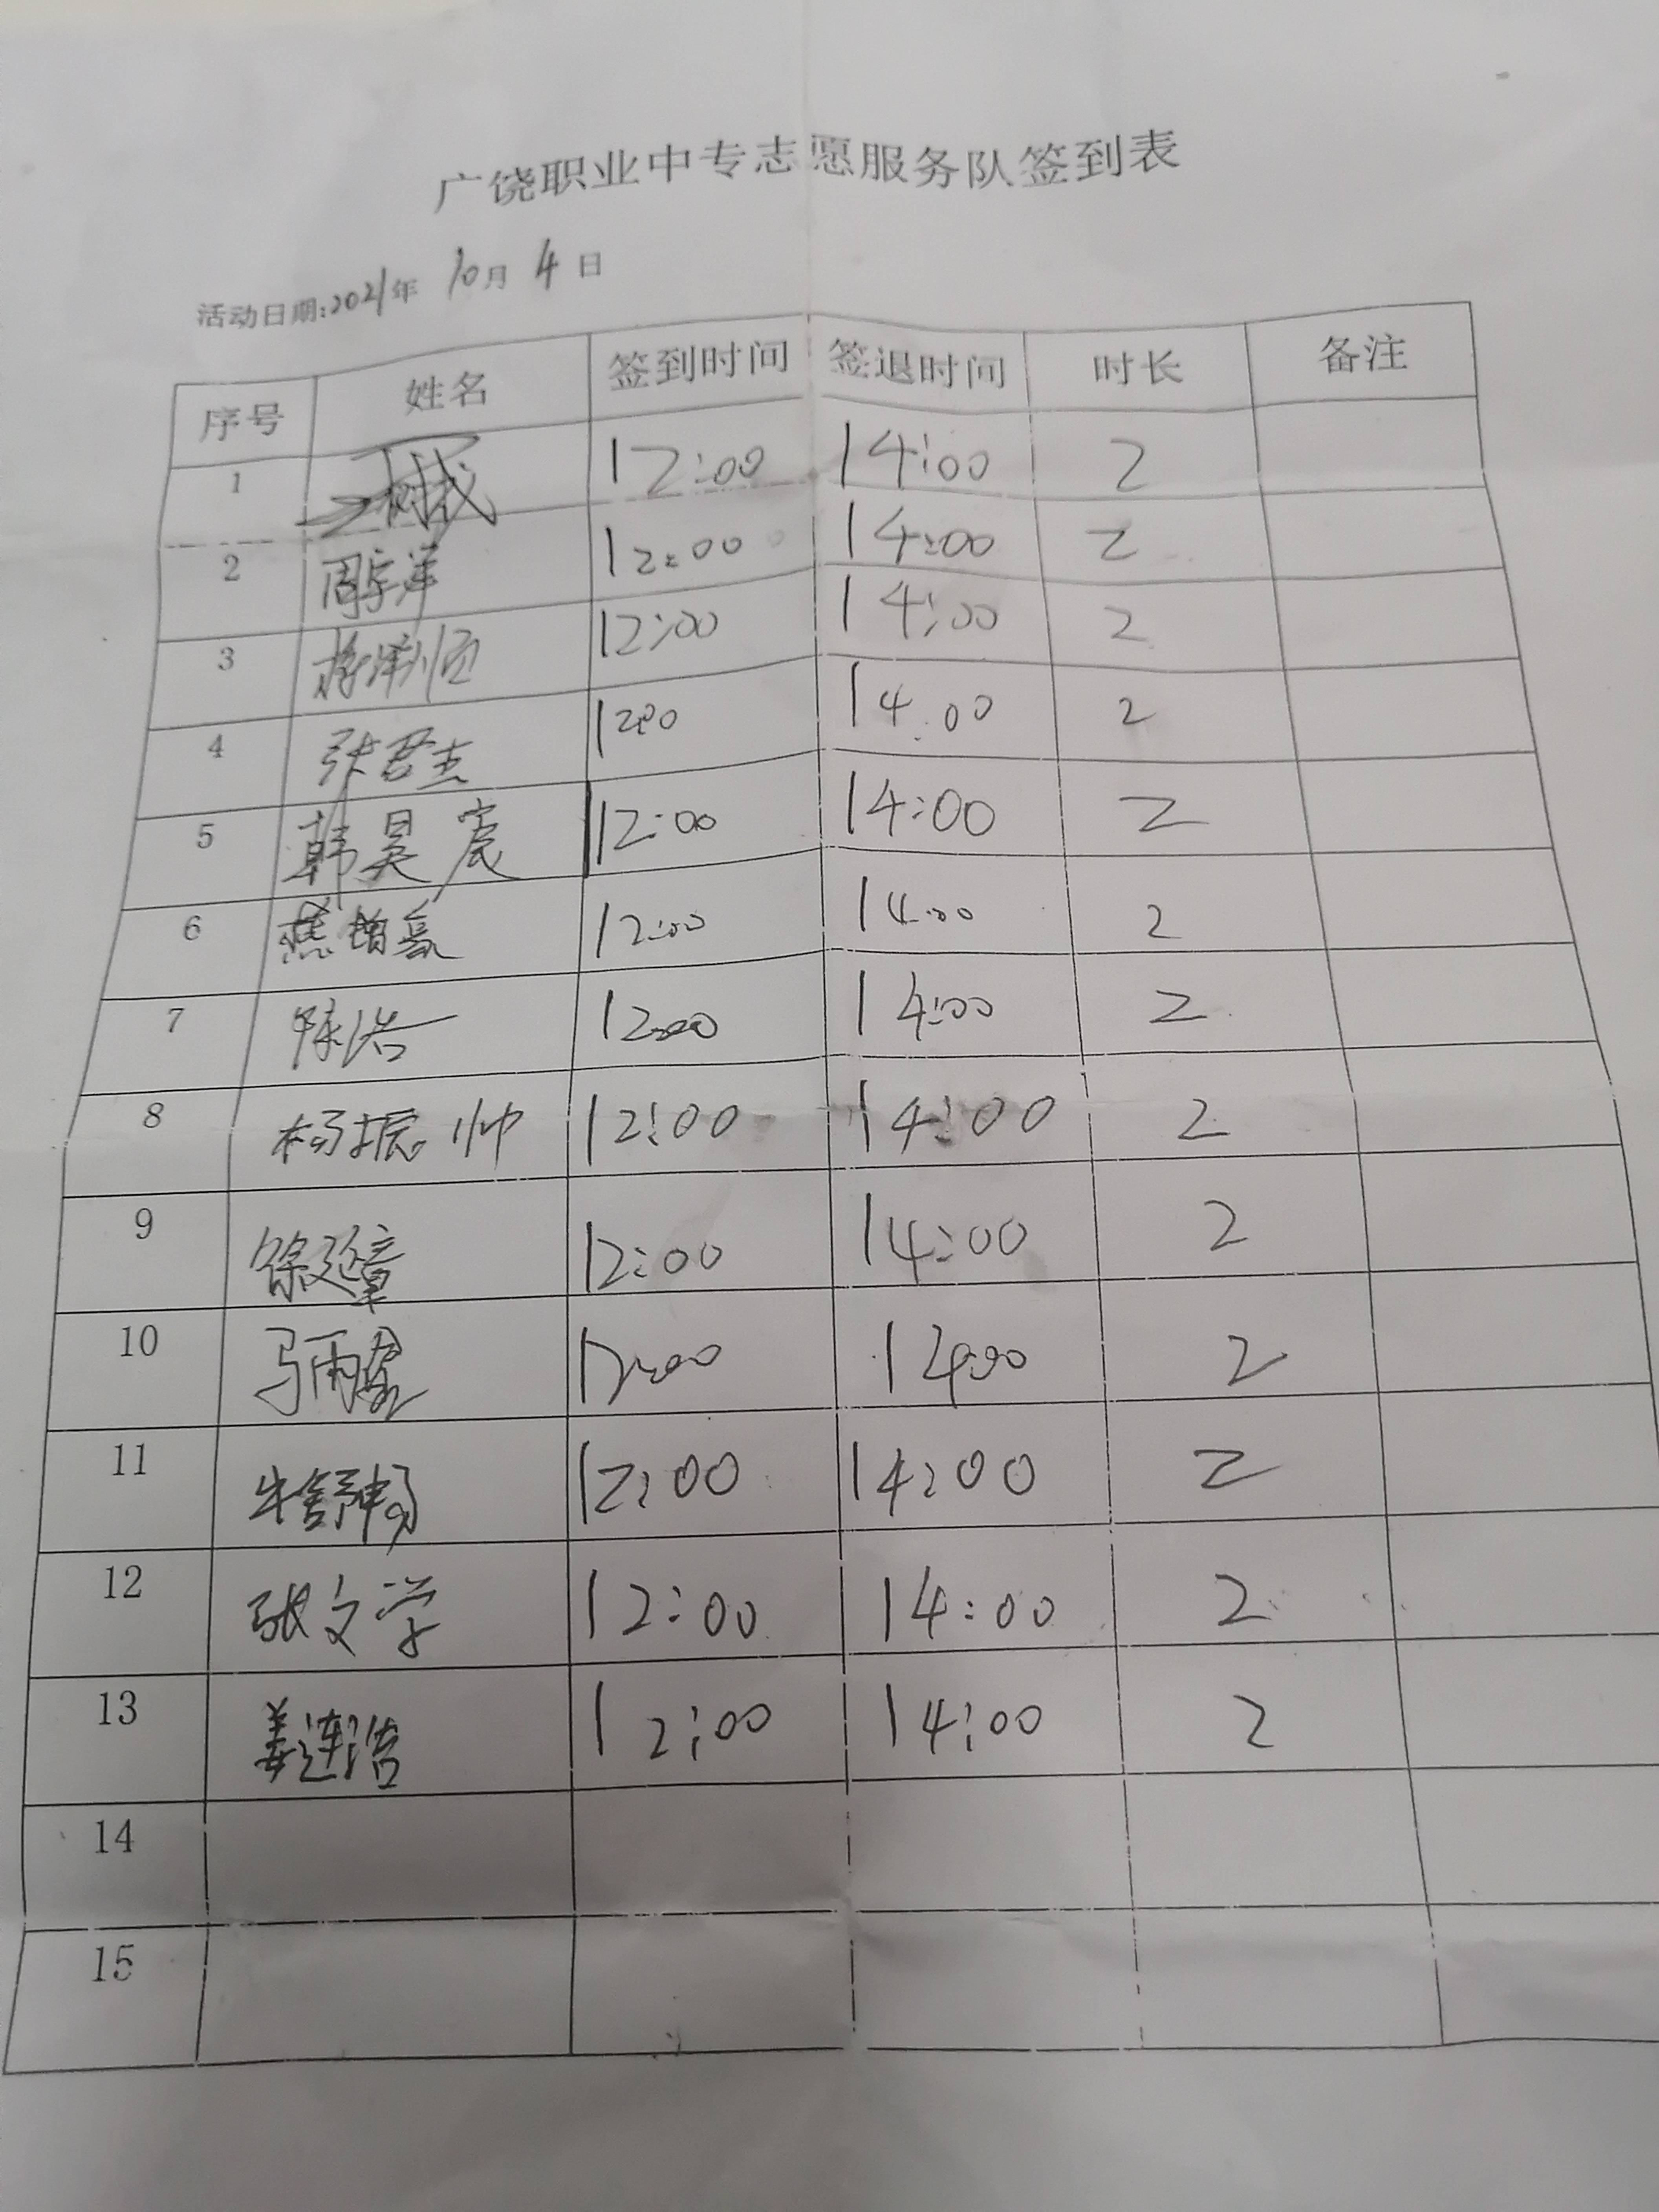 广饶职业中专志愿服务队签到表
活动日期:2021年 10月 4日
序号 姓名 签到时间 签退时间 时长 备注
1 12:00 14:00 2
2 周宇洋 12:00 14:00 2
3 12:00 14:00 2
4 张君杰 12:00 14:00 2
5 韩昊宸 12:00 14:00 2
6 12:00 14:00 2
7 陈浩 12:00 14:00 2
8 杨振帅 12:00 14:00 2
9 徐延章 12:00 14:00 2
10 12:00 14:00 2
11 牛舒畅 12:00 14:00 2
12 张文学 12:00 14:00 2
13 姜连浩 12:00 14:00 2
14
15